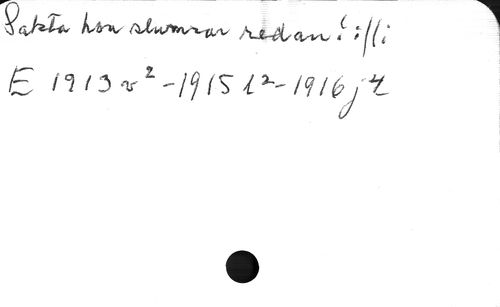 Sakta hon slumrar redan! ://:
E 1913 v² - 1915 l² - 1916 j 4